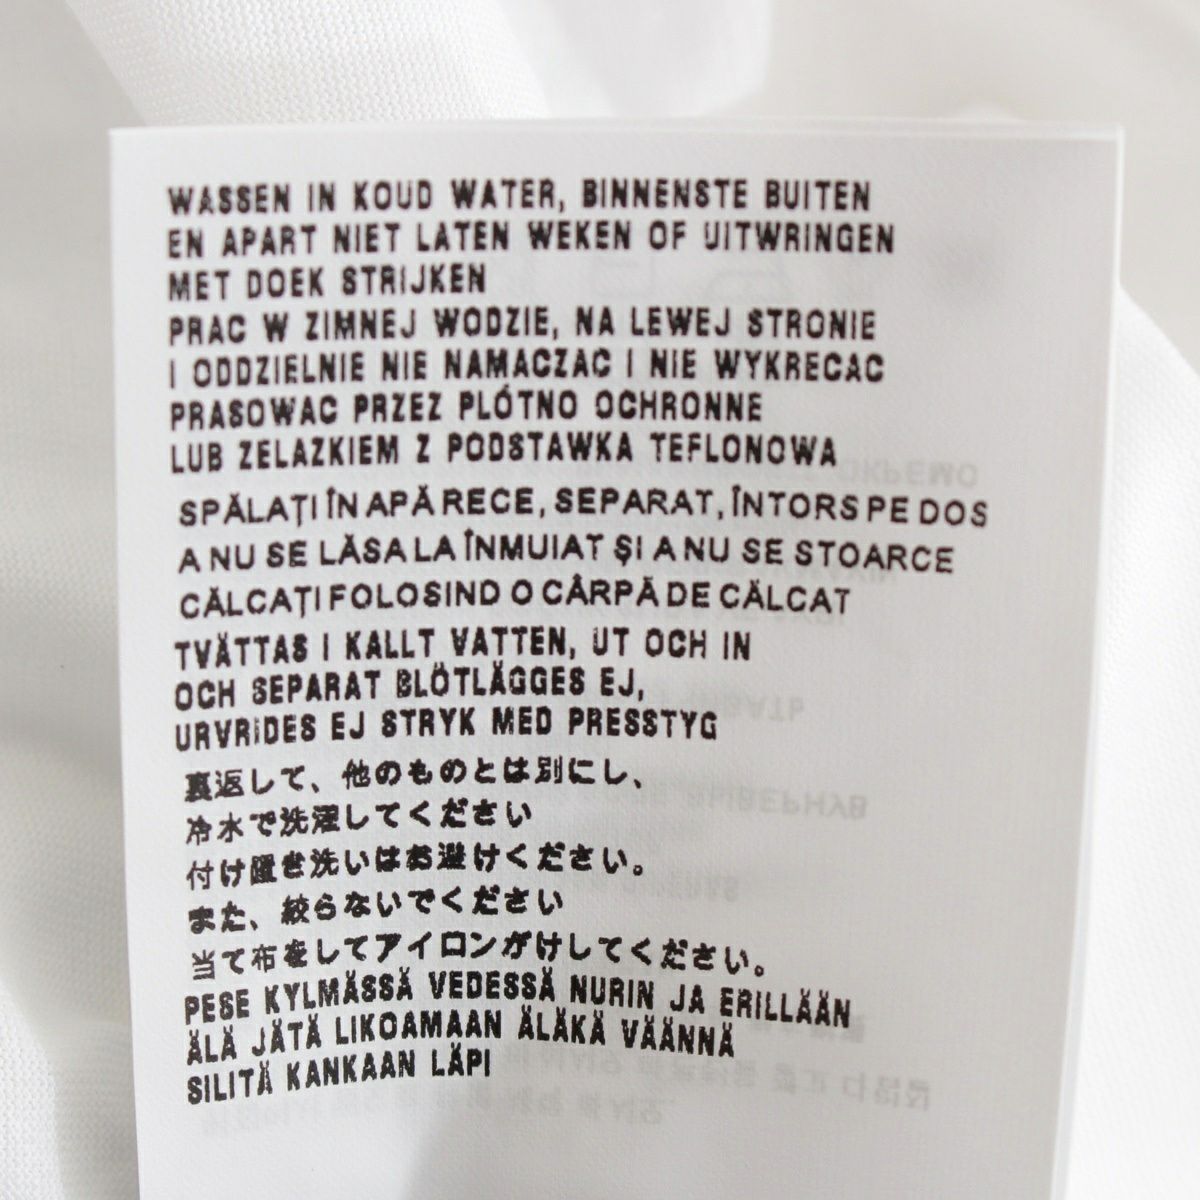 WASSEN IN KOUD WATER, BINNENSTE BUITEN
EN APART NIET LATEN WEKEN OF UITWRINGEN
MET DOEK STRIJKEN
PRAC W ZIMNEJ WODZIE, NA LEWEJ STRONIE
I ODDZIELNIE NIE NAMACZAC I NIE WYKRECAC
PRASOWAC PRZEZ PLÓTNO OCHRONNE
LUB ZELAZKIEM Z PODSTAWKA TEFLONOWA
SPĂLAȚI ÎN APĂ RECE, SEPARAT, ÎNTORS PE DOS
A NU SE LĂSA LA ÎNMUIAT ȘI A NU SE STOARCE
CĂLCAȚI FOLOSIND O CÂRPĂ DE CĂLCAT
TVÄTTAS I KALLT VATTEN, UT OCH IN
OCH SEPARAT BLÖTLÄGGES EJ,
URVRIDES EJ STRYK MED PRESSTYG
裏返して、他のものとは別にし、
冷水で洗濯してください
付け置き洗いはお避けください。
また、絞らないでください
当て布をしてアイロンがけしてください。
PESE KYLMÄSSÄ VEDESSÄ NURIN JA ERILLÄÄN
ÄLÄ JÄTÄ LIKOAMAAN ÄLÄKÄ VÄÄNNÄ
SILITÄ KANKAAN LÄPI